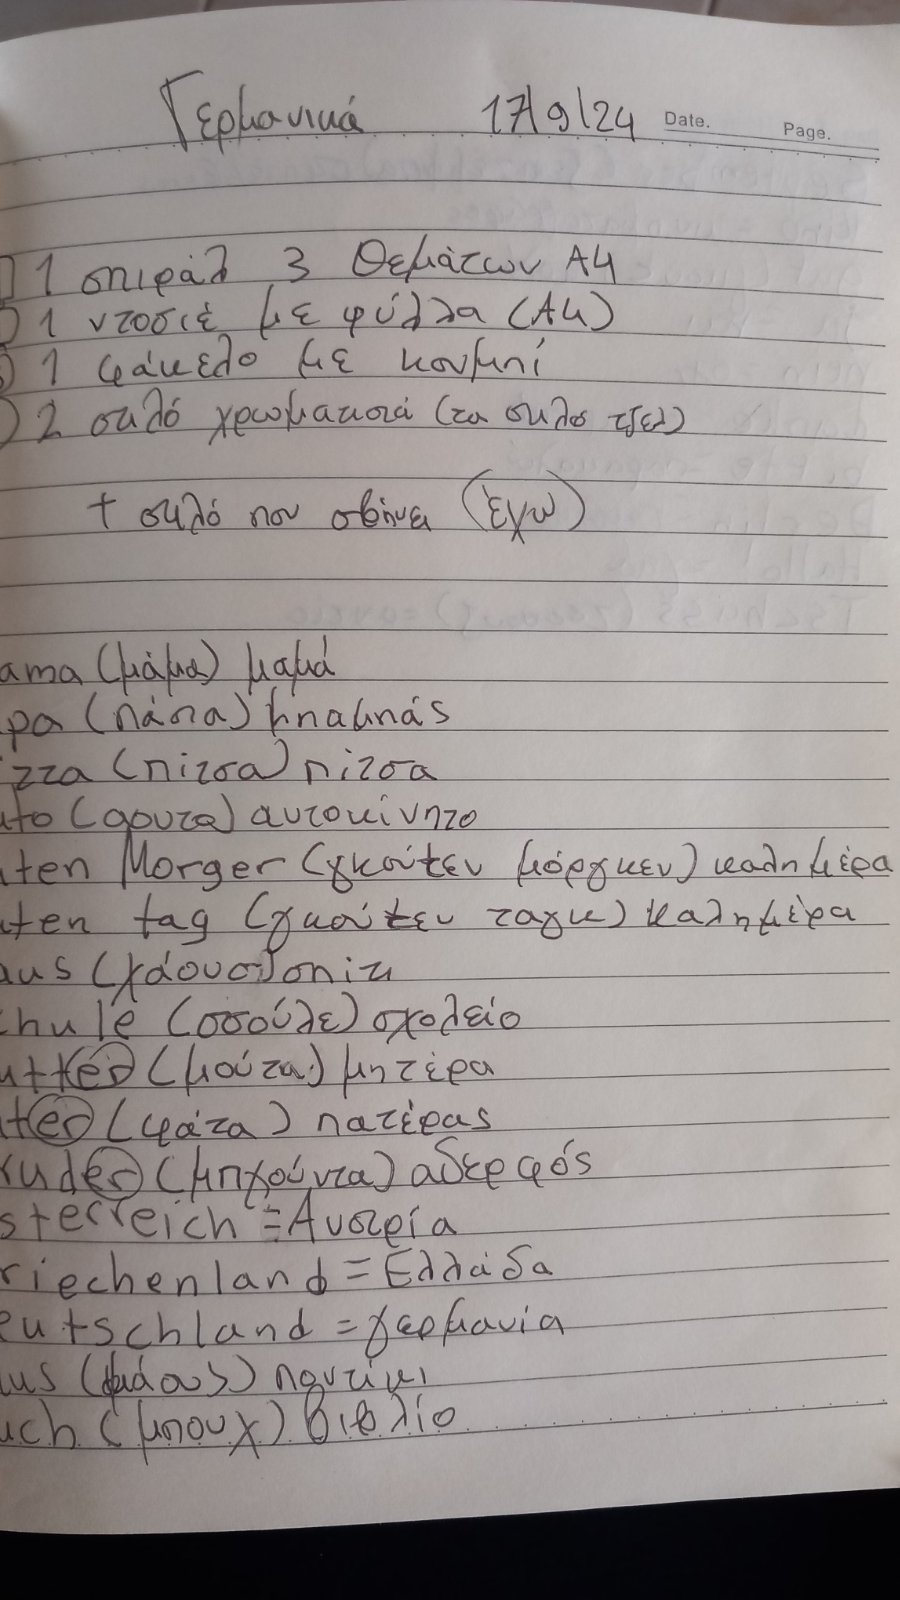 Γερμανικά 17/9/24 Date. Page.
1 σπιράλ 3 θεμάτων A4
1 ντοσιέ με φύλλα (A4)
1 φάκελο με κουμπί
2 στυλό χρωματιστά (τα στυλό τζελ)
+ στυλό που σβήνει (έχω)
ama (μάμα) μαμά
pa (πάπα) μπαμπάς
izza (πίτσα) πίτσα
uto (άουτο) αυτοκίνητο
uten Morger (γκούτεν μόργκεν) καλημέρα
uten tag (γκούτεν ταγκ) καλημέρα
aus (χάουσ) σπίτι
chule (σσούλε) σχολείο
utter (μούτα) μητέρα
ter (φάτα) πατέρας
ruder (μπχούντα) αδερφός
sterreich = Αυστρία
riechenland = Ελλάδα
eutschland = γερμανία
aus (μάους) ποντίκι
uch (μπουχ) βιβλίο